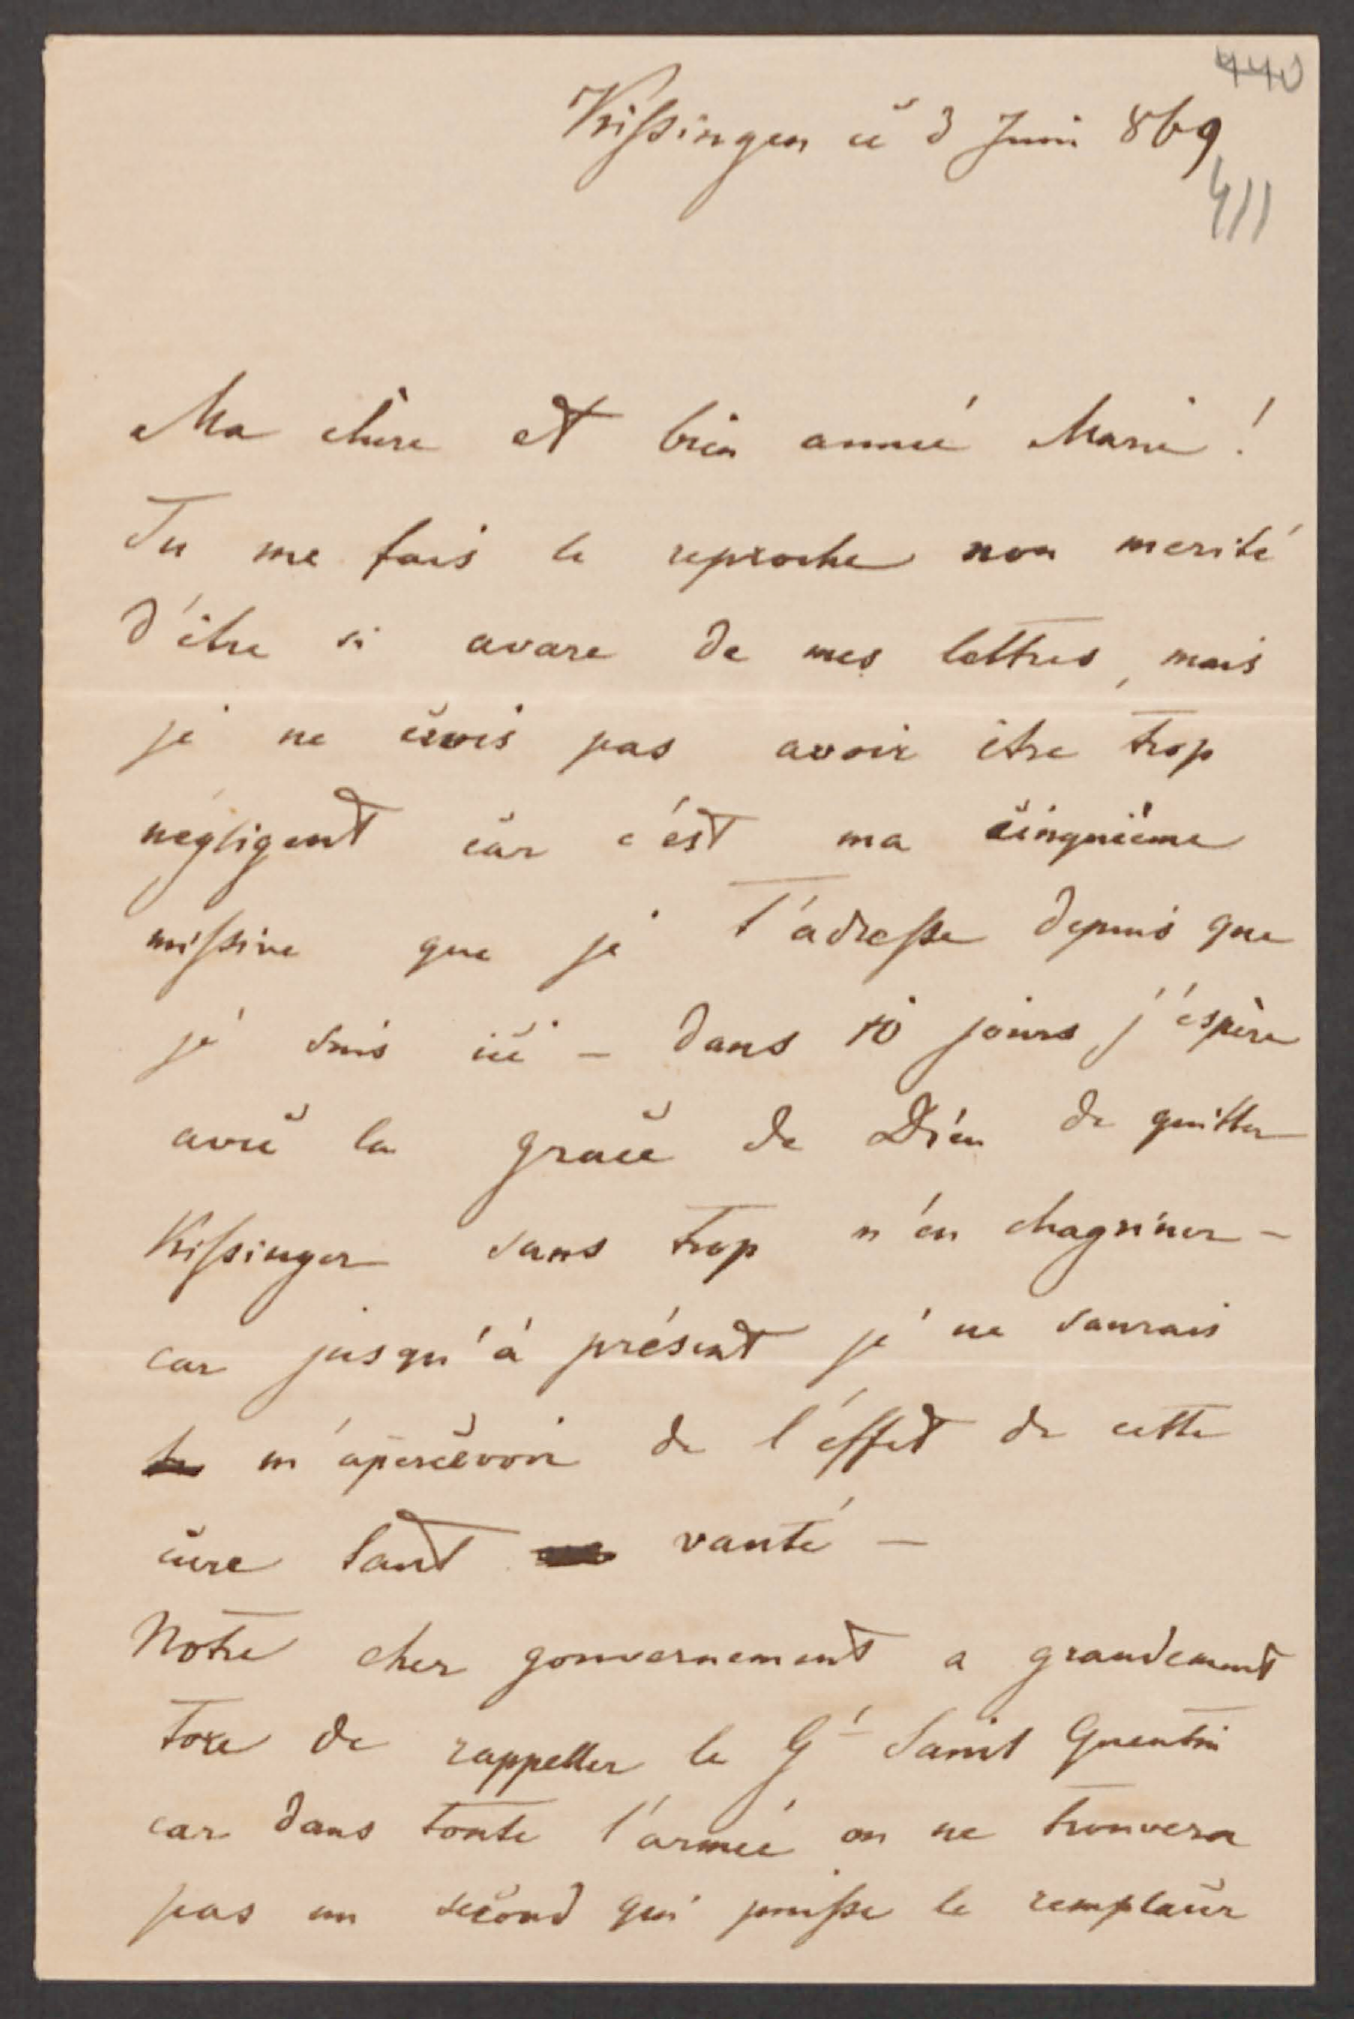 440
Kissingen cè 3 Juin 869
411
Ma chère et bien aimée Marie !
Tu me fais le reproche non merité
d'être si avare de mes lettres, mais
je ne crois pas avoir être trop
négligent car c'est ma cinquième
missive que je t'adresse depuis que
je suis ici – dans 10 jours j'éspère
avec la grace de Dieu de quitter
Kissingen sans trop m'en chagriner –
car jusqu'à présent je ne saurais
m'apercevoir de l'éffet de cette
cure tant vanté –
Notre cher gouvernement a grandement
tore de rappeller le Gl Saint Quentin
car dans toute l'armée on ne trouvera
pas un second qui puisse le remplacer